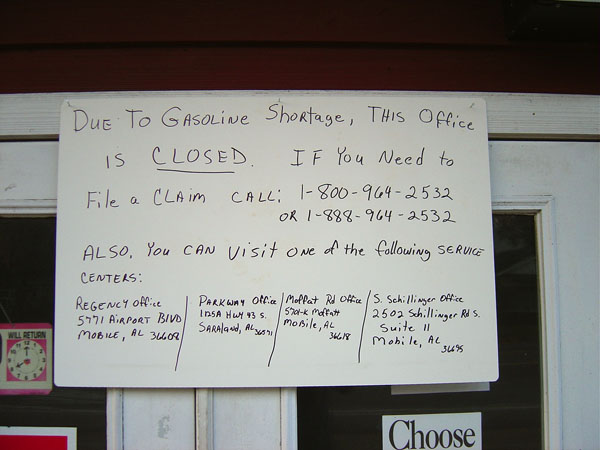 Due To Gasoline Shortage, This Office
is CLOSED. If You Need to
File a Claim Call: 1-800-964-2532
OR 1-888-964-2532
Also, You can visit one of the following service
centers:
Regency Office
5771 Airport Blvd
Mobile, AL 36608
Parkway Office
1125A Hwy 43 S.
Saraland, AL 36571
Moffat Rd Office
5701-K Moffatt
Mobile, AL
36618
S. Schillinger Office
2502 Schillinger Rd S.
Suite 11
Mobile, AL
36695
WILL RETURN
Choose